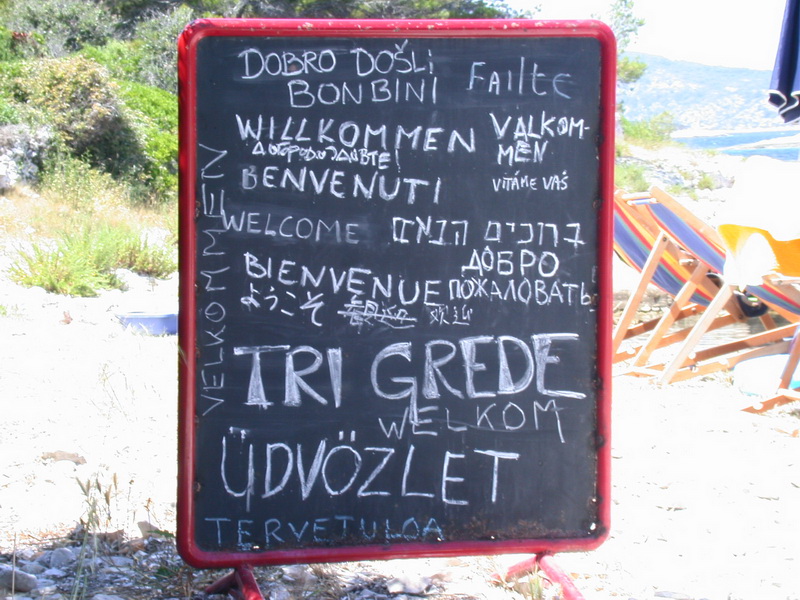 DOBRO DOŠLi
FAilTE
BONBINI
WILLKOMMEN
VALKOM-
MEN
BENVENUTI
VITÁME VÁS
VELKOMMEN
WELCOME
ברוכים הבאים
BIENVENUE
ДОБРО
ПОЖАЛОВАТЬ!
ようこそ
欢迎
TRI GREDE
WELKOM
ÜDVÖZLET
TERVETULOA